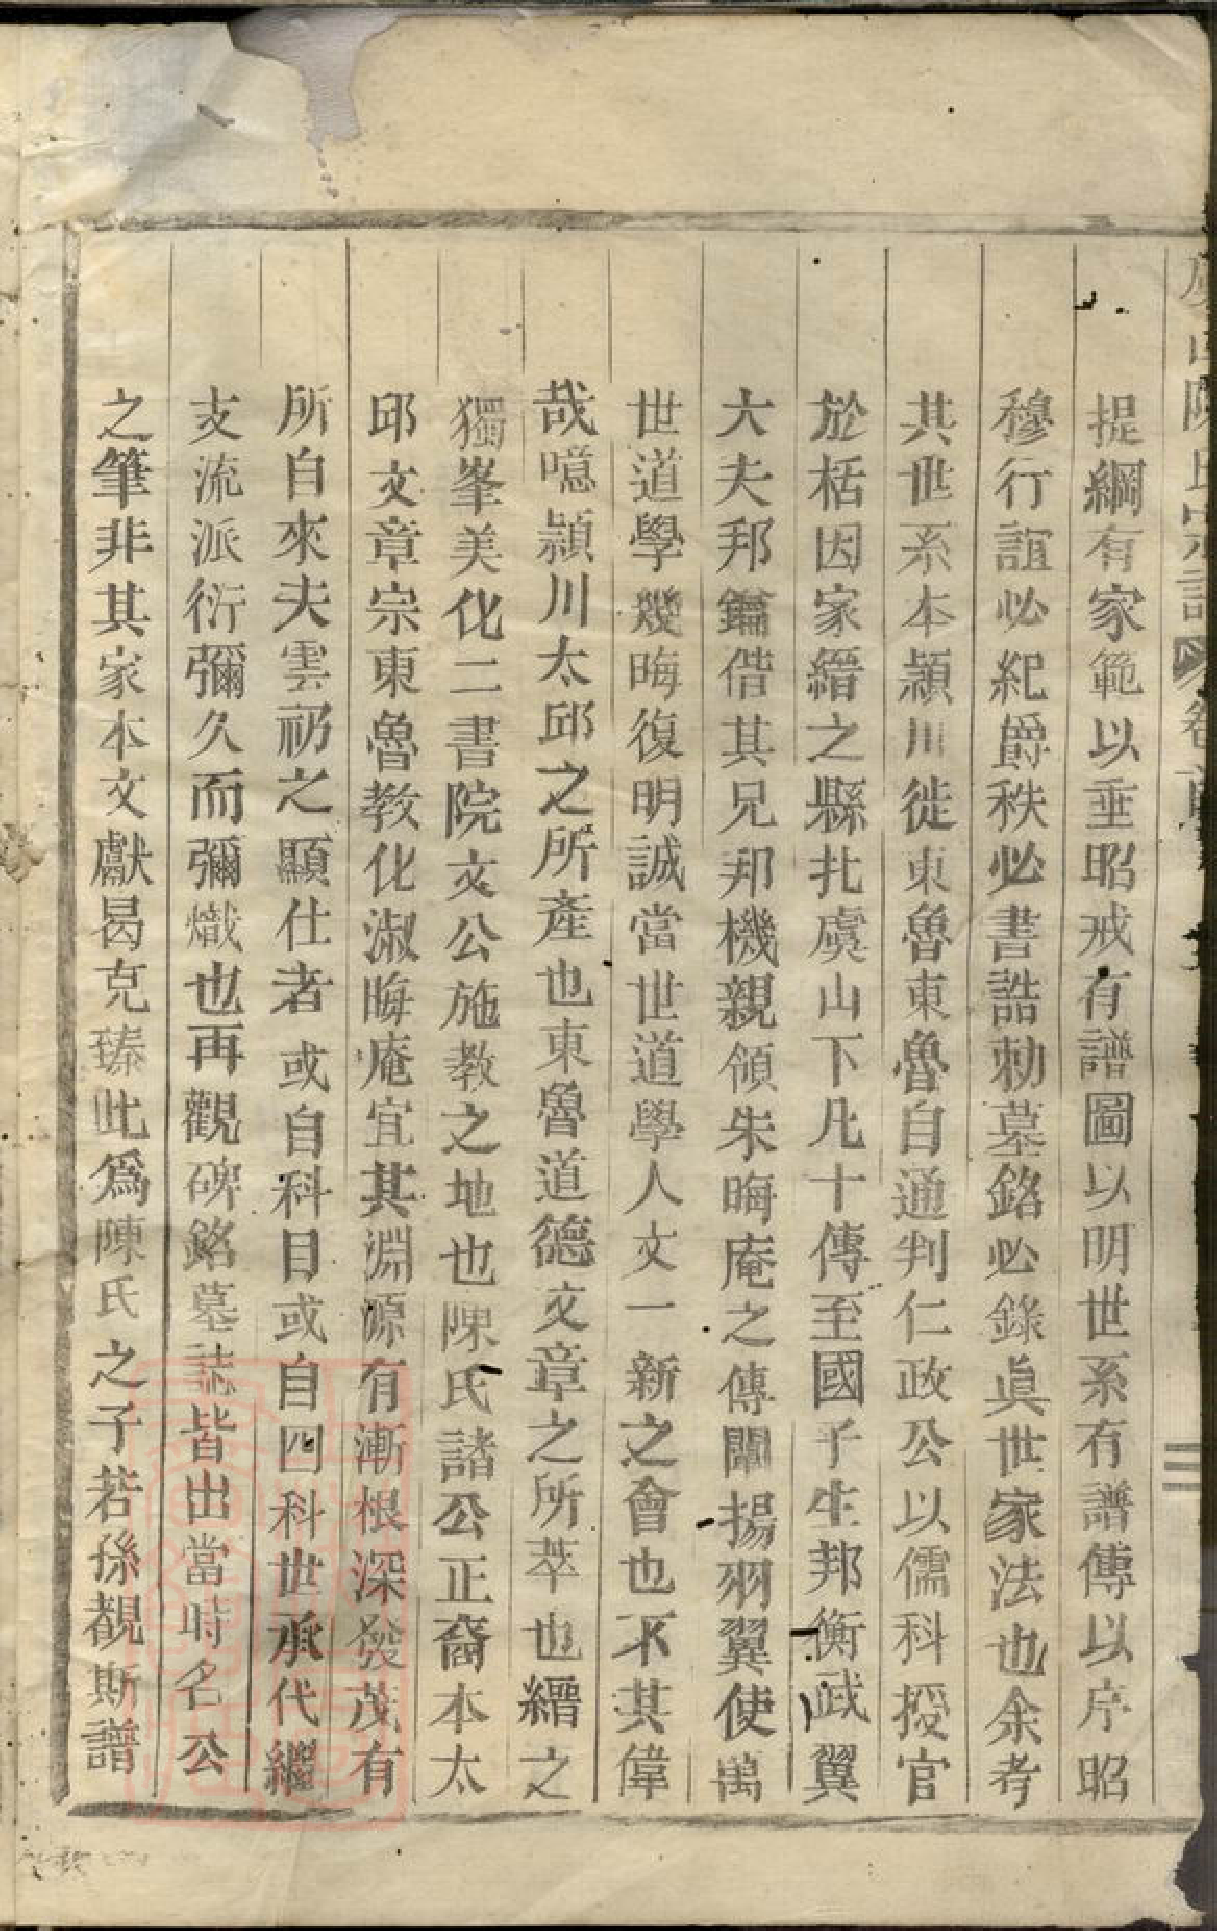 虞山陳氏宗譜 卷首
提綱有家範以垂昭戒有譜圖以明世系有譜傳以序昭
穆行誼必紀爵秩必書誥勅墓銘必錄眞世家法也余考
其世系本頴川徙東魯東魯自通判仁政公以儒科授官
於栝因家縉之縣北虞山下凡十傳至國子生邦衡武翼
大夫邦鑰偕其兄邦機親領朱晦庵之傳闡揚羽翼使萬
世道學幾晦復明誠當世道學人文一新之會也不其偉
哉噫頴川太邱之所產也東魯道德文章之所萃也縉之
獨峯美化二書院文公施教之地也陳氏諸公正裔本太
邱文章宗東魯教化淑晦庵宜其淵源有漸根深發茂有
所自來夫雲礽之顯仕者或自科目或自四科世承代繼
支流派衍彌久而彌熾也再觀碑銘墓誌皆出當時名公
之筆非其家本文獻曷克臻此爲陳氏之子若孫覩斯譜